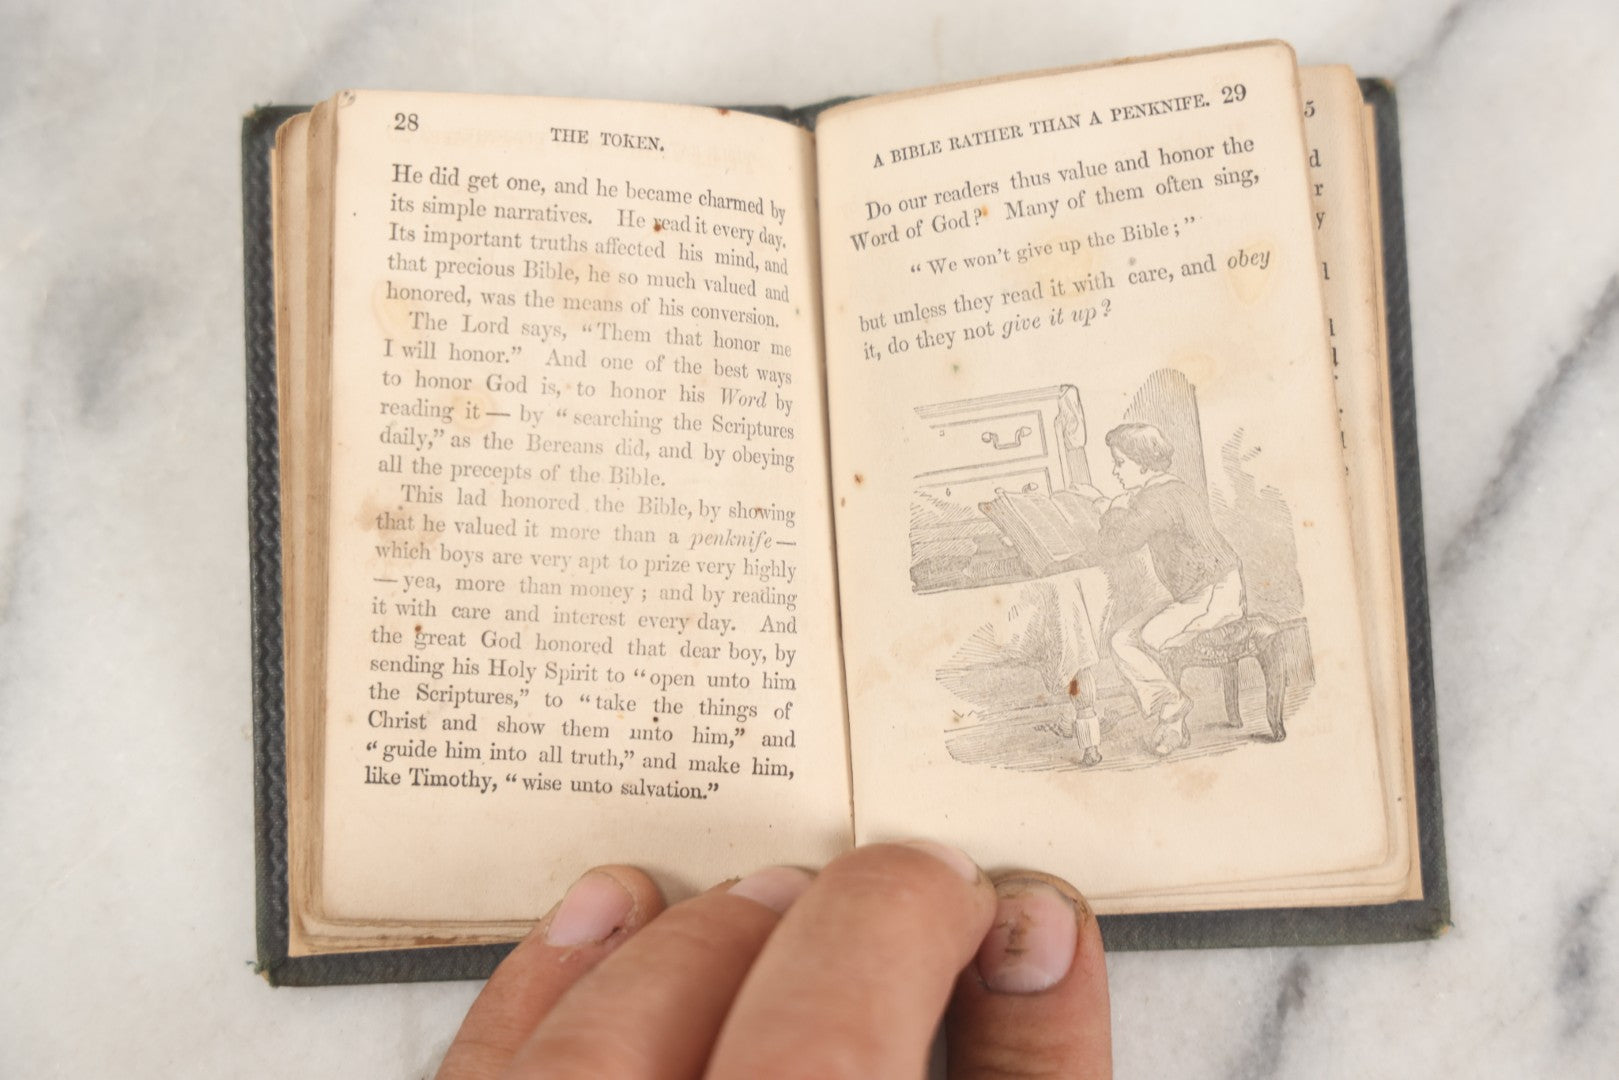 28
THE TOKEN.
He did get one, and he became charmed by
its simple narratives. He read it every day.
Its important truths affected his mind, and
that precious Bible, he so much valued and
honored, was the means of his conversion.
The Lord says, “Them that honor me
I will honor.” And one of the best ways
to honor God is, to honor his Word by
reading it — by “searching the Scriptures
daily,” as the Bereans did, and by obeying
all the precepts of the Bible.
This lad honored the Bible, by showing
that he valued it more than a penknife —
which boys are very apt to prize very highly
— yea, more than money; and by reading
it with care and interest every day. And
the great God honored that dear boy, by
sending his Holy Spirit to “open unto him
the Scriptures,” to “take the things of
Christ and show them unto him,” and
“guide him into all truth,” and make him,
like Timothy, “wise unto salvation.”
A BIBLE RATHER THAN A PENKNIFE. 29
Do our readers thus value and honor the
Word of God? Many of them often sing,
“We won’t give up the Bible;”
but unless they read it with care, and obey
it, do they not give it up?
5
d
r
y
l